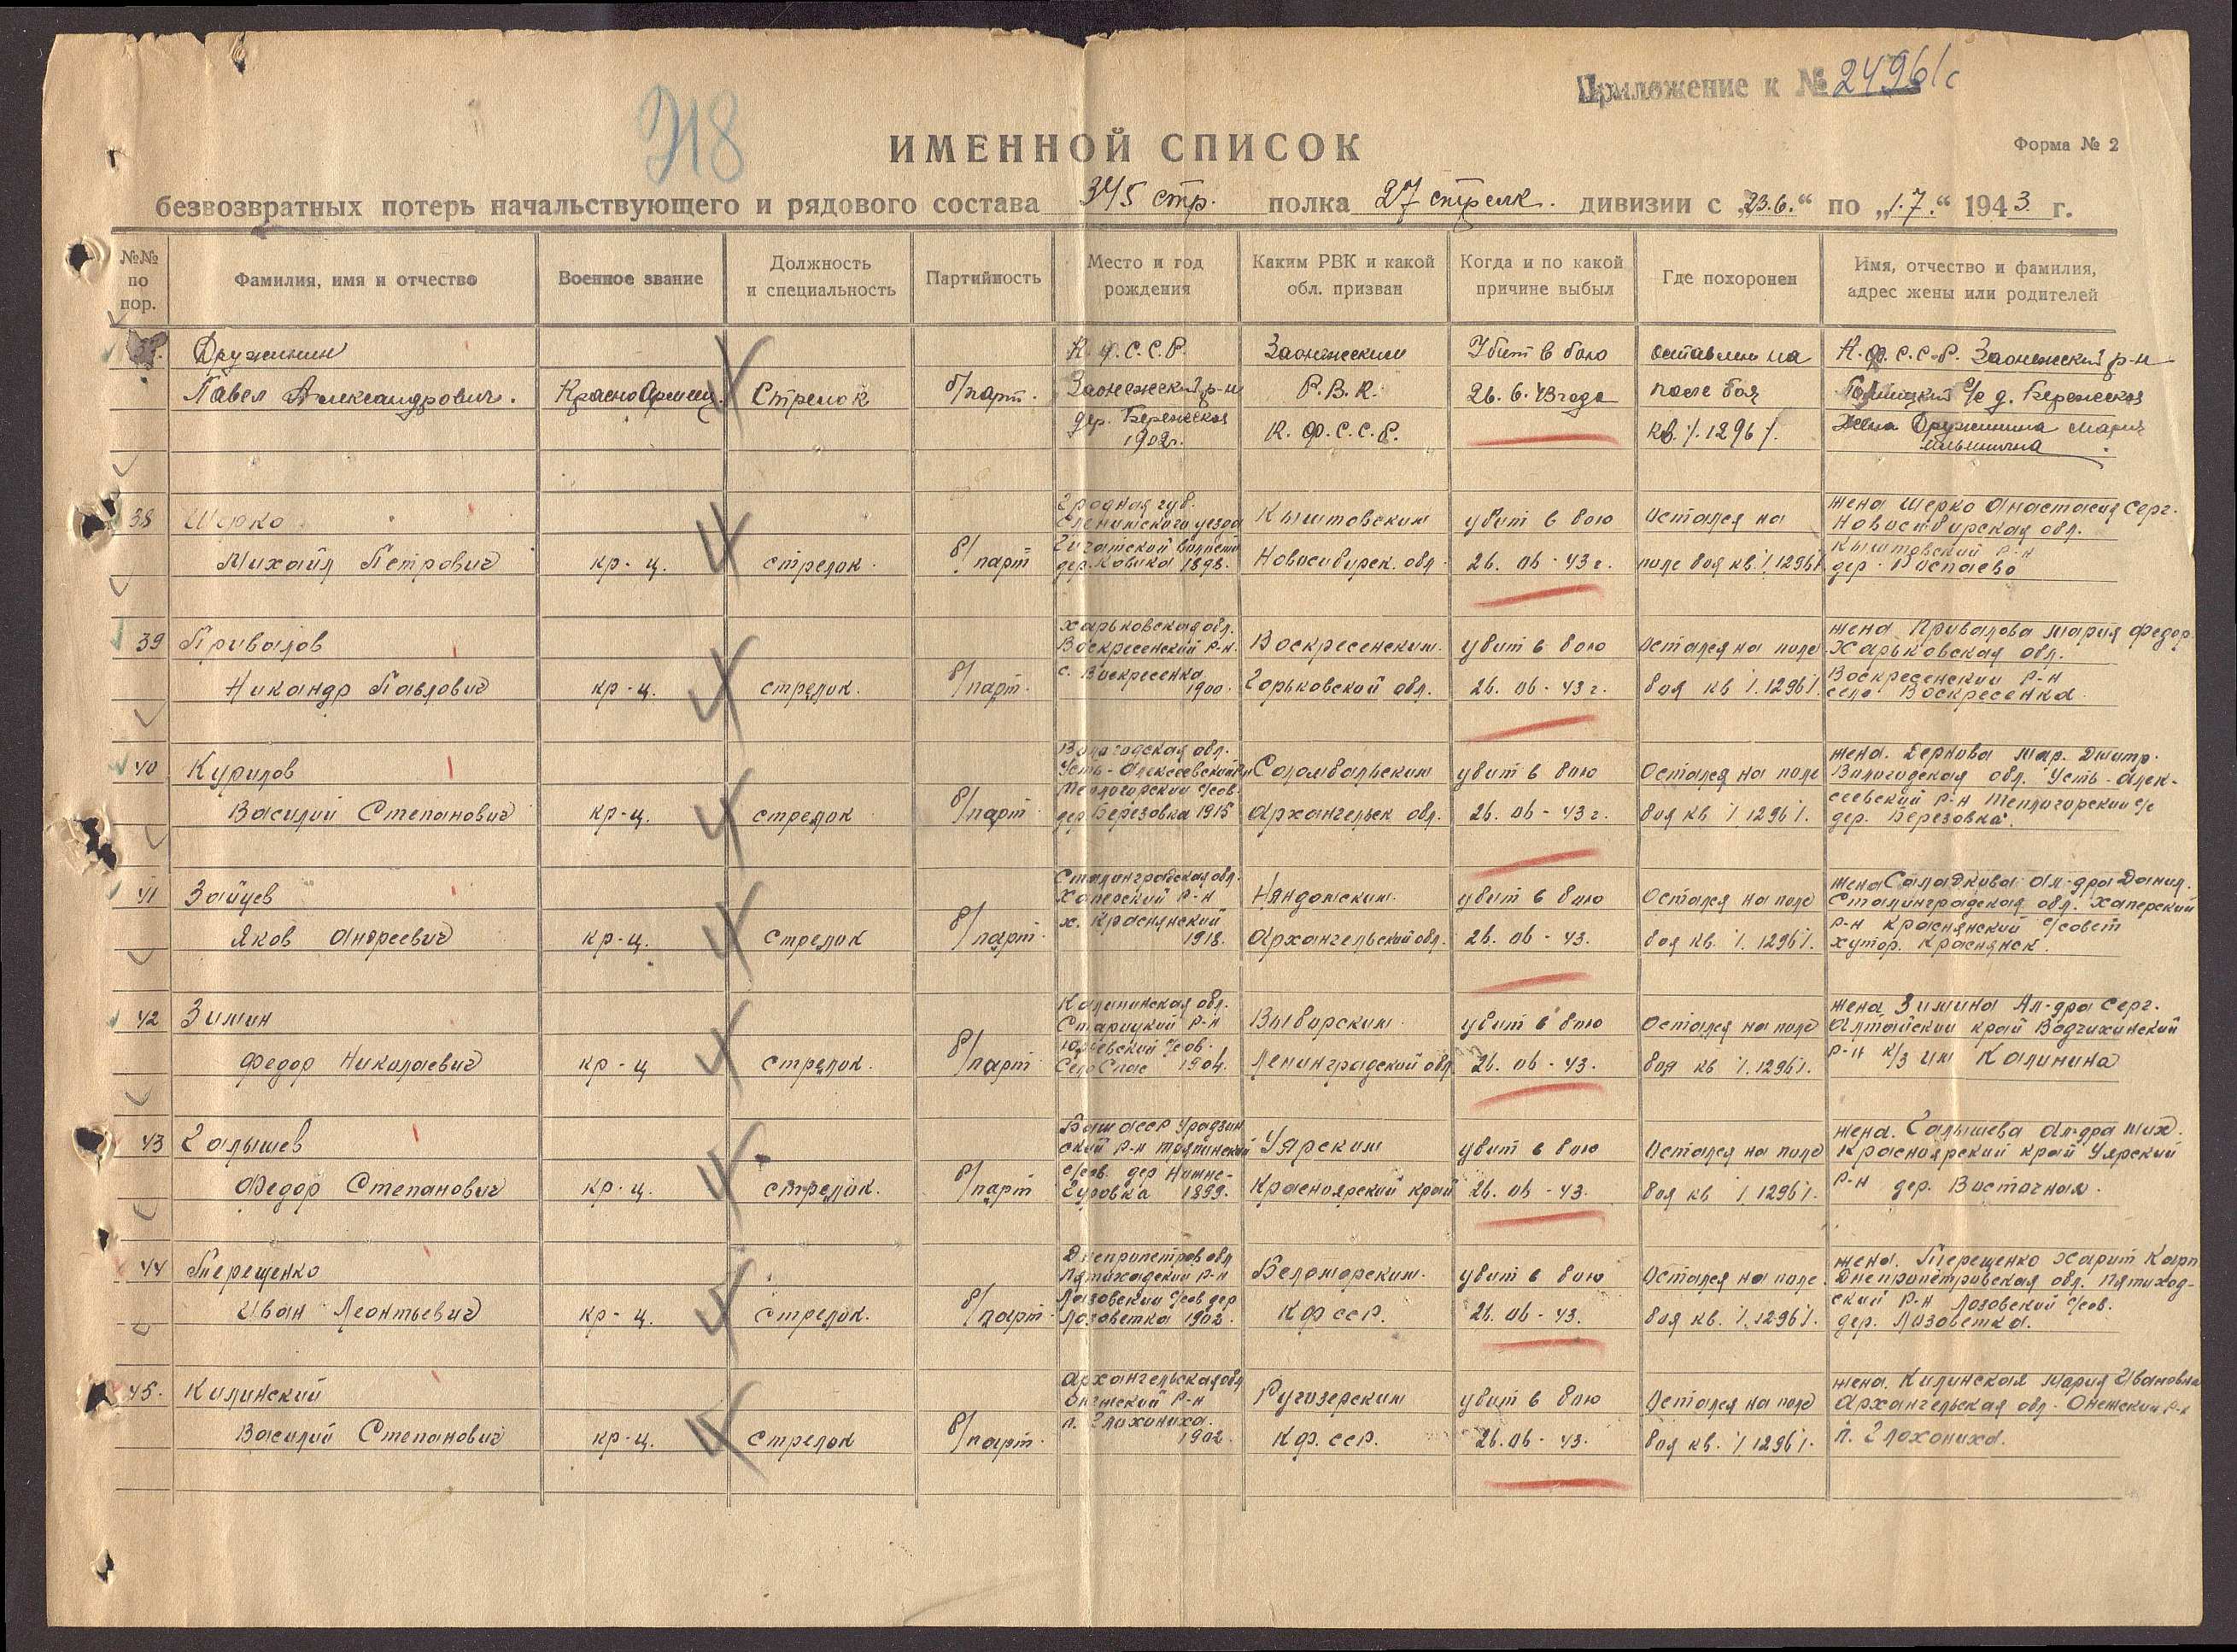 Приложение к № 2496/с
318
ИМЕННОЙ СПИСОК
Форма № 2
безвозвратных потерь начальствующего и рядового состава 345 стр. полка 27 стрелк. дивизии с „23.6.“ по „1.7.“ 1943 г.
№№ по пор.
Фамилия, имя и отчество
Военное звание
Должность и специальность
Партийность
Место и год рождения
Каким РВК и какой обл. призван
Когда и по какой причине выбыл
Где похоронен
Имя, отчество и фамилия, адрес жены или родителей
Дружинин
К.Ф.С.С.Р.
Заонежским
Убит в бою
оставлен на
К.Ф.С.С.Р. Заонежский р-н
Павел Александрович.
Красноармеец
Стрелок
б/парт.
Заонежский р-н
Р.В.К.
26.6.43 года
поле боя
с/с д. Бережская
дер. Бережская
1902г.
К.Ф.С.С.Р.
кв. /.1296/.
Жена Дружинина Мария
38
Шерко
уезда
Кыштовским
убит в бою
Остался на
жена Шерко Анастасия Серг.
Новосибирская обл.
Михаил Петрович
кр-ц.
стрелок
б/парт
дер. 1898.
Новосибирск. обл.
26.06-43 г.
поле боя кв. /.1296/
Кыштовский р-н
дер.
39
Привалов
Харьковская обл.
Воскресенский р-н.
Воскресенским.
убит в бою
Остался на поле
жена Привалова Мария Федор.
Харьковская обл.
Никандр Павлович
кр-ц.
стрелок.
б/парт.
с. Воскресенка
1900.
Горьковской обл.
26.06-43 г.
боя кв /.1296/.
Воскресенский р-н
село Воскресенка.
40
Курилов
Вологодская обл.
Усть-Алексеевский
Соломбальским
убит в бою
Остался на поле
жена. Дернова Мар. Дмитр.
Вологодская обл. Усть-Алек-
Василий Степанович
кр-ц.
стрелок
б/парт.
с/сов.
дер Березовка 1915
Архангельск обл.
26.06-43 г.
боя кв /.1296/.
сеевский р-н Теплогорский с/с
дер. Березовка.
41
Зайцев
Сталинградская обл.
Хоперский р-н
Няндомским.
убит в бою
Остался на поле
жена Саладкова Ал-дра Данил.
Сталинградская обл. Хаперский
Яков Андреевич
кр-ц.
стрелок
б/парт.
х. Краснянский
1918.
Архангельской обл.
26.06-43.
боя кв. /.1296/.
р-н Краснянский с/совет
хутор. Краснянск.
42
Зимин
Калининская обл.
Старицкий р-н
Выборским
убит в бою
Остался на поле
жена Зимина Ал-дра Серг.
Алтайский край
Федор Николаевич
кр-ц
стрелок.
б/парт
с/сов.
Село Спас 1904.
Ленинградской обл
26.06-43.
боя кв /.1296/.
р-н к/з им Калинина
43
Галышев
Баш АССР
ский р-н
Уярским
убит в бою
Остался на поле
жена. Галышева Ал-дра Мих.
Красноярский край Уярский
Федор Степанович
кр-ц.
стрелок.
б/парт
с/сов. дер Нижне-
1899.
Красноярский край
26.06-43.
боя кв /.1296/.
р-н дер. Восточная.
44
Терещенко
Днепропетров обл
Пятихадский р-н
Беломорским.
убит в бою
Остался на поле.
жена. Терещенко Харит Карп
Днепропетровская обл. Пятихад-
Иван Леонтьевич
кр-ц.
стрелок.
б/парт.
Лозовский с/сов дер
Лозоветка 1902.
КФССР.
26.06-43.
боя кв. /.1296/.
ский р-н Лозовский с/сов.
дер. Лозоветка.
45.
Килинский
Архангельская обл
Онежский р-н
Ругозерским
убит в бою
Остался на поле
жена. Килинская Мария Ивановна
Архангельская обл. Онежский р-н
Василий Степанович
кр-ц.
стрелок
б/парт.
п.
1902.
КФ.ССР.
26.06-43.
боя кв. /.1296/.
п.